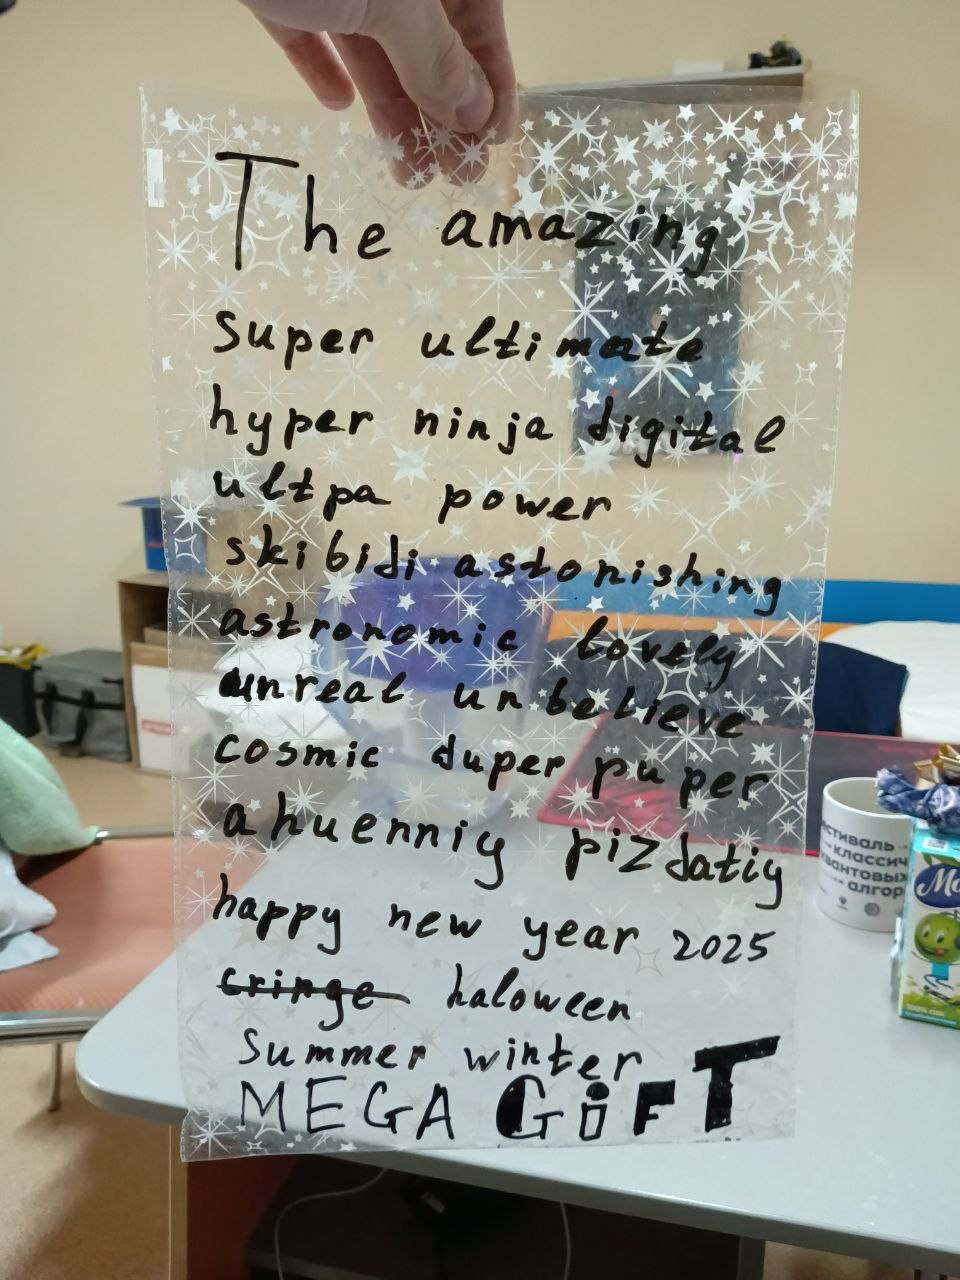 The amazing
super ultimate
hyper ninja digital
ultpa power
skibidi astonishing
astronomic lovely
unreal unbelieve
cosmic duper puper
ahuenniy pizdatiy
happy new year 2025
cringe haloween
Summer winter
MEGA GiFT
классич
алгор